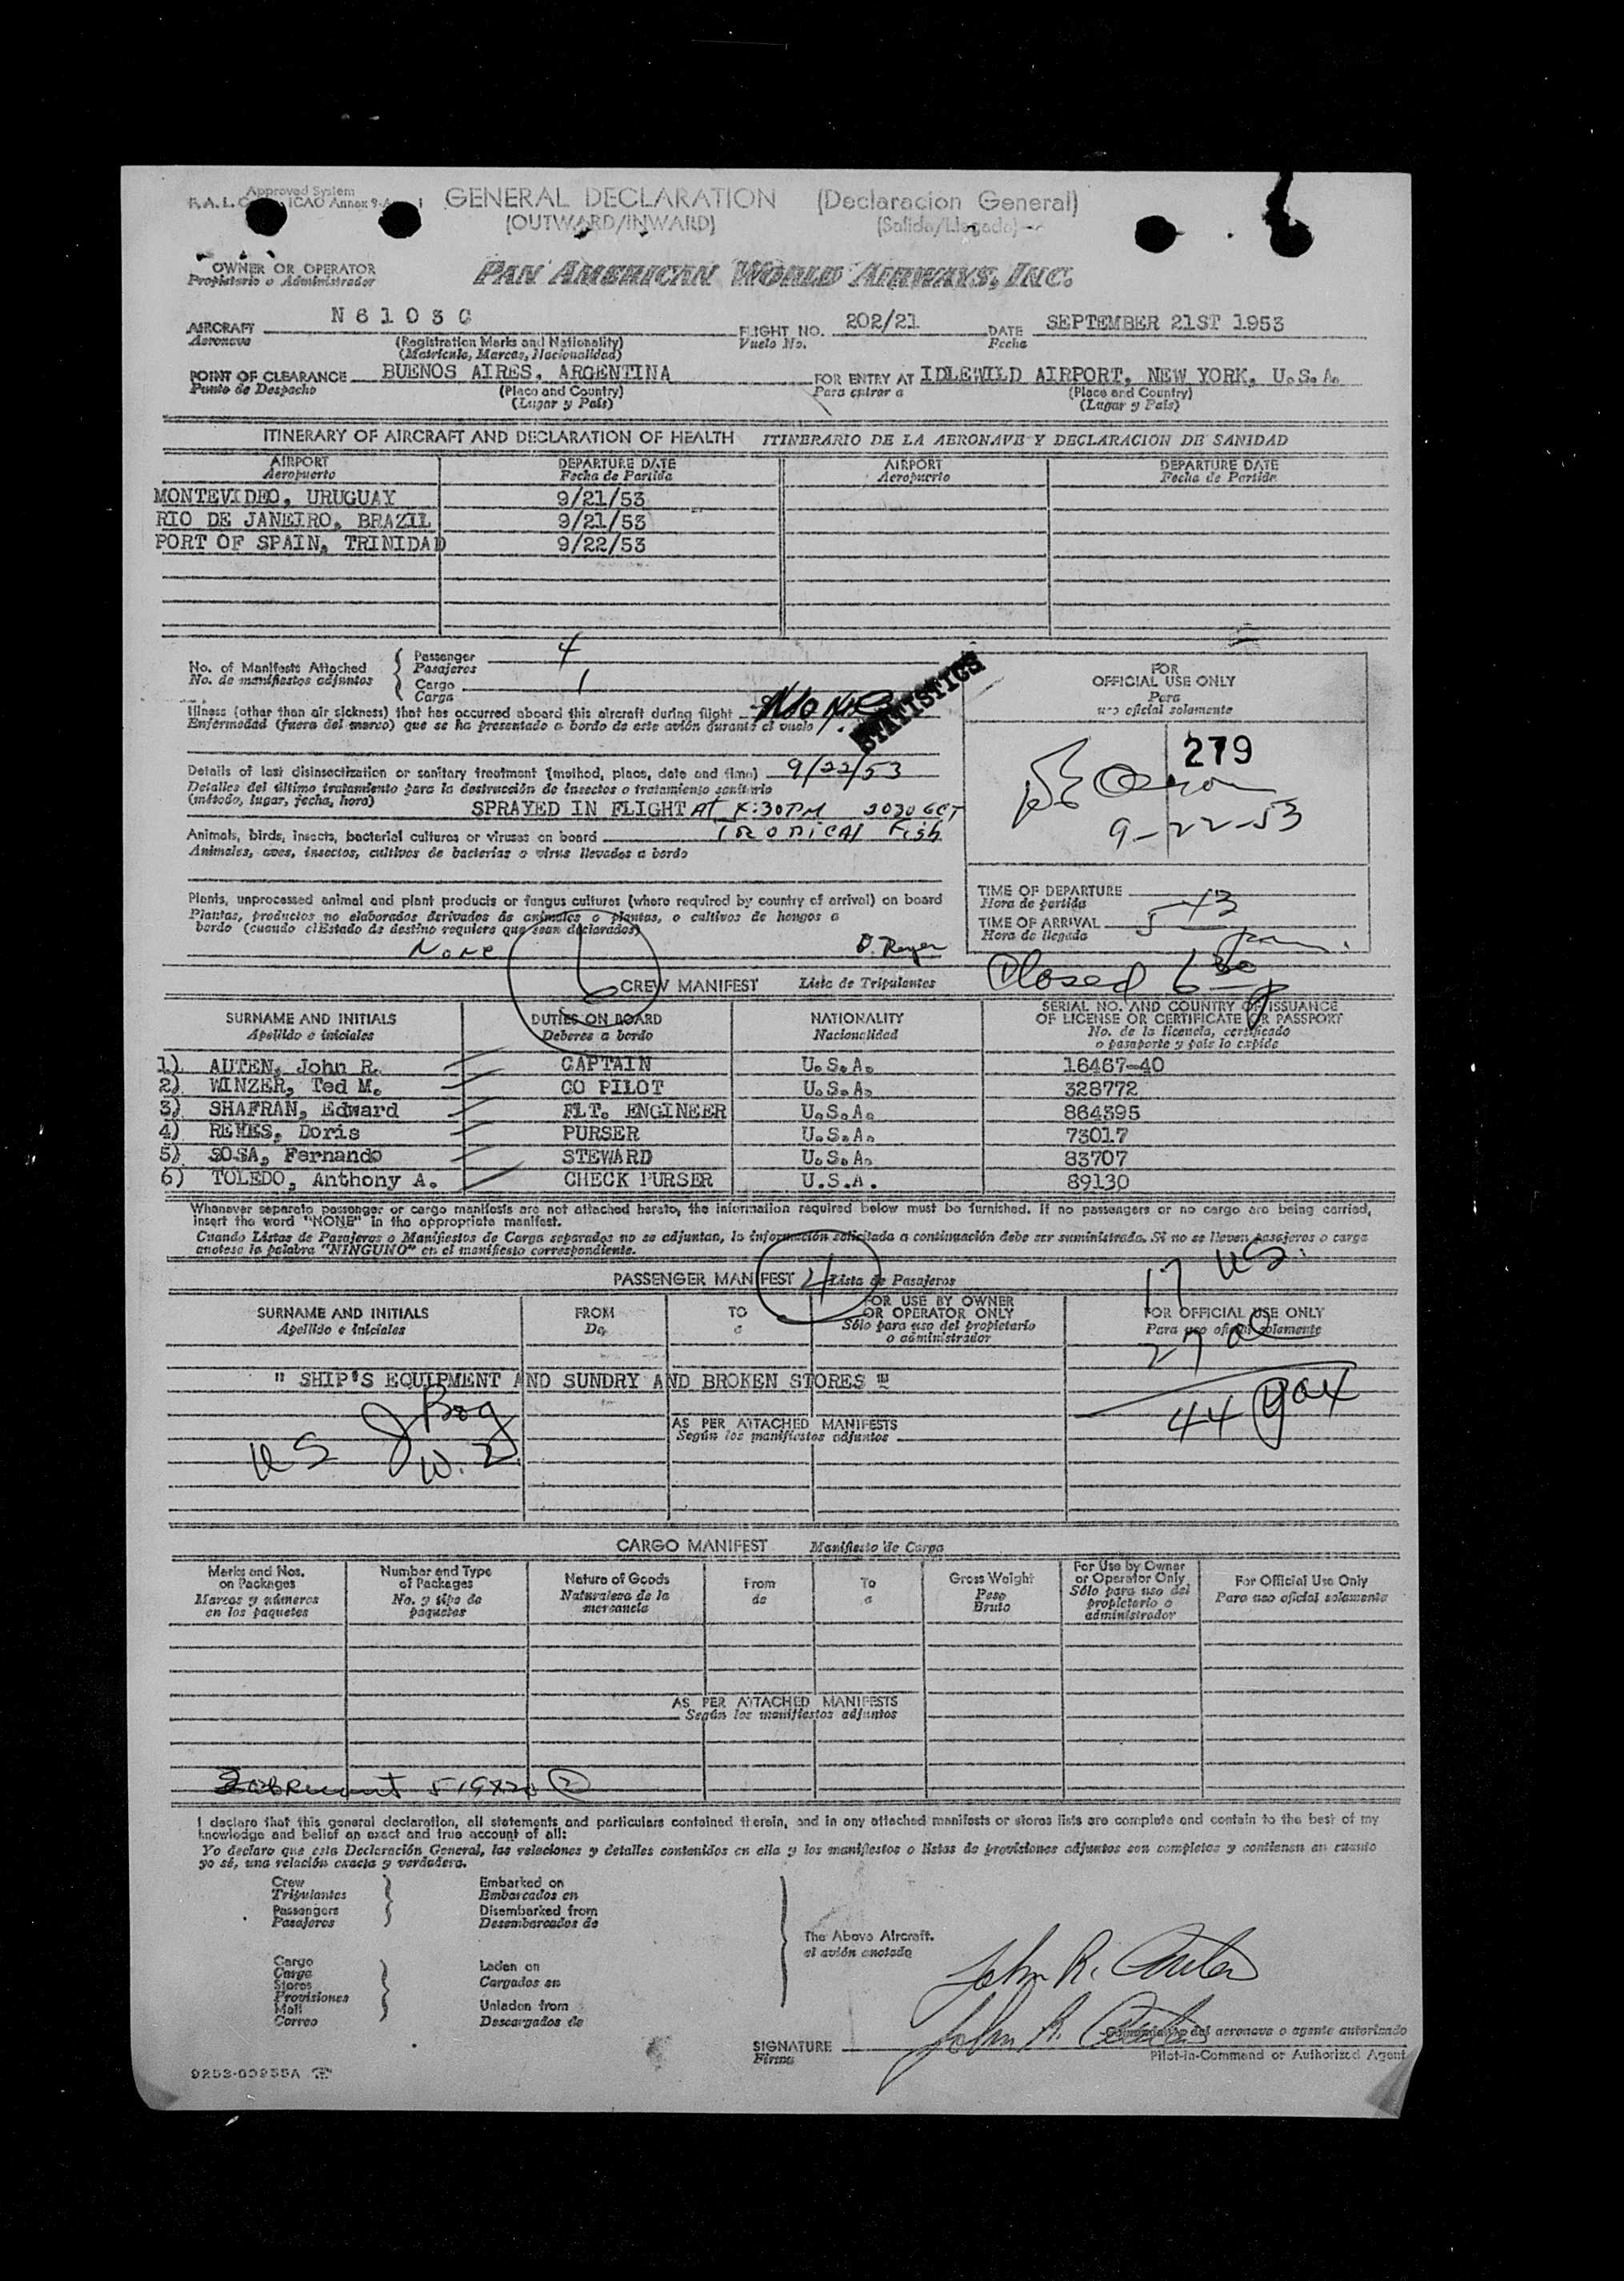 Approved System
F.A.L. ICAO Annex 9-
GENERAL DECLARATION (Declaracion General)
(OUTWARD/INWARD) (Salida/Llegada)
OWNER OR OPERATOR PAN AMERICAN WORLD AIRWAYS, INC.
Propietario o Administrador
AIRCRAFT N 6 1 0 3 C FLIGHT NO. 202/21 DATE SEPTEMBER 21ST 1953
Aeronave (Registration Marks and Nationality) Vuelo No. Fecha
(Matricula, Marcas, Nacionalidad)
POINT OF CLEARANCE BUENOS AIRES, ARGENTINA FOR ENTRY AT IDLEWILD AIRPORT, NEW YORK, U.S.A.
Punto de Despacho (Place and Country) Para entrar a (Place and Country)
(Lugar y País) (Lugar y País)
ITINERARY OF AIRCRAFT AND DECLARATION OF HEALTH ITINERARIO DE LA AERONAVE Y DECLARACION DE SANIDAD
AIRPORT DEPARTURE DATE AIRPORT DEPARTURE DATE
Aeropuerto Fecha de Partida Aeropuerto Fecha de Partida
MONTEVIDEO, URUGUAY 9/21/53
RIO DE JANEIRO, BRAZIL 9/21/53
PORT OF SPAIN, TRINIDAD 9/22/53
No. of Manifests Attached Passenger 4
No. de manifiestos adjuntos Pasajeros
Cargo 1
Carga
STATISTICS
Illness (other than air sickness) that has occurred aboard this aircraft during flight None
Enfermedad (fuera del mareo) que se ha presentado a bordo de este avión durante el vuelo
FOR
OFFICIAL USE ONLY
Para
uso oficial solamente
279
9-22-53
Details of last disinsectization or sanitary treatment (method, place, date and time) 9/22/53
Detalles del último tratamiento para la destrucción de insectos o tratamiento sanitario
(método, lugar, fecha, hora)
SPRAYED IN FLIGHT At 4:30PM 2030 GCT
Animals, birds, insects, bacterial cultures or viruses on board TROPICAL Fish
Animales, aves, insectos, cultivos de bacterias o virus llevados a bordo
Plants, unprocessed animal and plant products or fungus cultures (where required by country of arrival) on board
Plantas, productos no elaborados derivados de animales o plantas, o cultivos de hongos a
bordo (cuando el Estado de destino requiere que sean declarados)
None
TIME OF DEPARTURE
Hora de partida
TIME OF ARRIVAL 5 43
Hora de llegada
Closed 6 30 p
6
CREW MANIFEST Lista de Tripulantes
SURNAME AND INITIALS DUTIES ON BOARD NATIONALITY SERIAL NO. AND COUNTRY OF ISSUANCE
OF LICENSE OR CERTIFICATE OR PASSPORT
Apellido e iniciales Deberes a bordo Nacionalidad No. de la licencia, certificado
o pasaporte y país lo expide
1) AUTEN, John R. CAPTAIN U.S.A. 16467-40
2) WINZER, Ted M. CO PILOT U.S.A. 328772
3) SHAFRAN, Edward FLT. ENGINEER U.S.A. 864395
4) REYES, Doris PURSER U.S.A. 73017
5) SOSA, Fernando STEWARD U.S.A. 83707
6) TOLEDO, Anthony A. CHECK PURSER U.S.A. 89130
Whenever separate passenger or cargo manifests are not attached hereto, the information required below must be furnished. If no passengers or no cargo are being carried,
insert the word "NONE" in the appropriate manifest.
Cuando Listas de Pasajeros o Manifiestos de Carga separados no se adjuntan, la información solicitada a continuación debe ser suministrada. Si no se lleven pasajeros o carga
anotese la palabra "NINGUNO" en el manifiesto correspondiente.
PASSENGER MANIFEST 4 Lista de Pasajeros
17 US.
SURNAME AND INITIALS FROM TO FOR USE BY OWNER FOR OFFICIAL USE ONLY
OR OPERATOR ONLY
Apellido e iniciales De a Sólo para uso del propietario Para uso oficial solamente
o administrador
27 al
" SHIP'S EQUIPMENT AND SUNDRY AND BROKEN STORES "
44 pax
AS PER ATTACHED MANIFESTS
Según los manifiestos adjuntos
US
CARGO MANIFEST Manifiesto de Carga
Marks and Nos. Number and Type Nature of Goods From To Gross Weight For Use by Owner For Official Use Only
on Packages of Packages or Operator Only
Marcas y números No. y tipo de Naturaleza de la de a Peso Sólo para uso del Para uso oficial solamente
en los paquetes paquetes mercancía Bruto propietario o
administrador
AS PER ATTACHED MANIFESTS
Según los manifiestos adjuntos
I declare that this general declaration, all statements and particulars contained therein, and in any attached manifests or stores lists are complete and contain to the best of my
knowledge and belief an exact and true account of all:
Yo declaro que esta Declaración General, las relaciones y detalles contenidos en ella y los manifiestos o listas de provisiones adjuntos son completos y contienen en cuanto
yo sé, una relación exacta y verdadera.
Crew Embarked on
Tripulantes Embarcados en
Passengers Disembarked from
Pasajeros Desembarcados de
The Above Aircraft.
el avión anotado
Cargo Laden on
Carga Cargados en
Stores
Provisiones
Mail Unladen from
Correo Descargados de
John R. Auten
John R. Auten
SIGNATURE Comandante del aeronave o agente autorizado
Firma Pilot-in-Command or Authorized Agent
9253-00955A